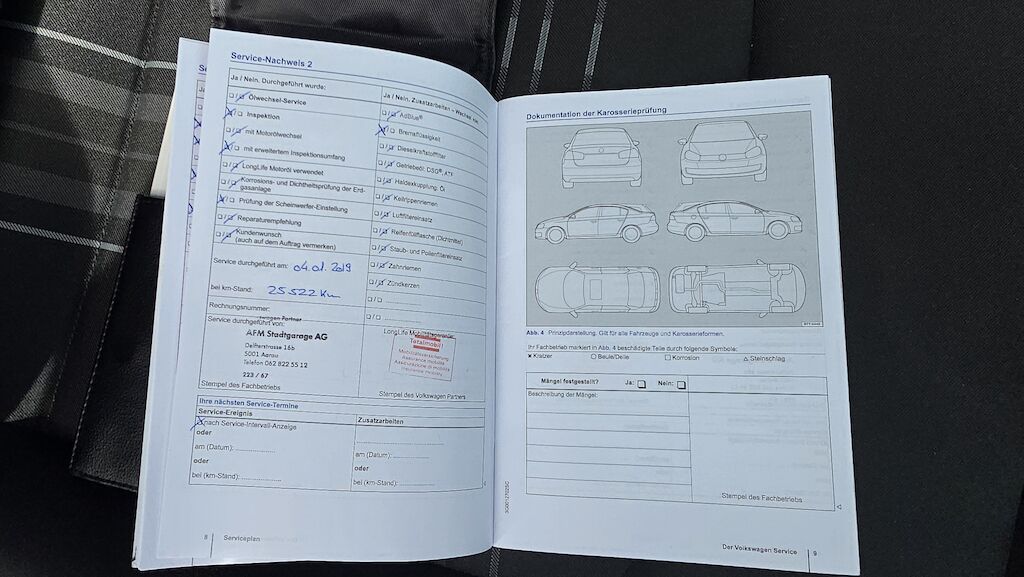 Service-Nachweis 2
Ja / Nein. Durchgeführt wurde:
Ölwechsel-Service
Inspektion
mit Motorölwechsel
mit erweitertem Inspektionsumfang
LongLife Motoröl verwendet
Korrosions- und Dichtheitsprüfung der Erd-
gasanlage
Prüfung der Scheinwerfer-Einstellung
Reparaturempfehlung
Kundenwunsch
(auch auf dem Auftrag vermerken)
Service durchgeführt am: 04.01.2019
bei km-Stand: 25522 Km
Rechnungsnummer:
Service durchgeführt von:
Partner
AFM Stadtgarage AG
Delfterstrasse 16b
5001 Aarau
Telefon 062 822 55 12
223 / 67
Stempel des Fachbetriebs
Ja / Nein. Zusatzarbeiten –
AdBlue®
Bremsflüssigkeit
Dieselkraftstofffilter
Getriebeöl: DSG®, ATF
Haldexkupplung: Öl
Keilrippenriemen
Luftfiltereinsatz
Reifenfüllflasche (Dichtmittel)
Staub- und Pollenfiltereinsatz
Zahnriemen
Zündkerzen
LongLife Mobilitätsgarantie:
Totalmobil!
Mobilitätsversicherung
Assurance mobilité
Assicurazione di mobilità
Insurance mobility
Stempel des Volkswagen Partners
Ihre nächsten Service-Termine
Service-Ereignis
nach Service-Intervall-Anzeige
oder
am (Datum):
oder
bei (km-Stand):
Zusatzarbeiten
am (Datum):
oder
bei (km-Stand):
8 Serviceplan
Dokumentation der Karosserieprüfung
Abb. 4 Prinzipdarstellung. Gilt für alle Fahrzeuge und Karosserieformen.
Ihr Fachbetrieb markiert in Abb. 4 beschädigte Teile durch folgende Symbole:
× Kratzer ○ Beule/Delle □ Korrosion △ Steinschlag
Mängel festgestellt? Ja: Nein:
Beschreibung der Mängel:
Stempel des Fachbetriebs
Der Volkswagen Service 9